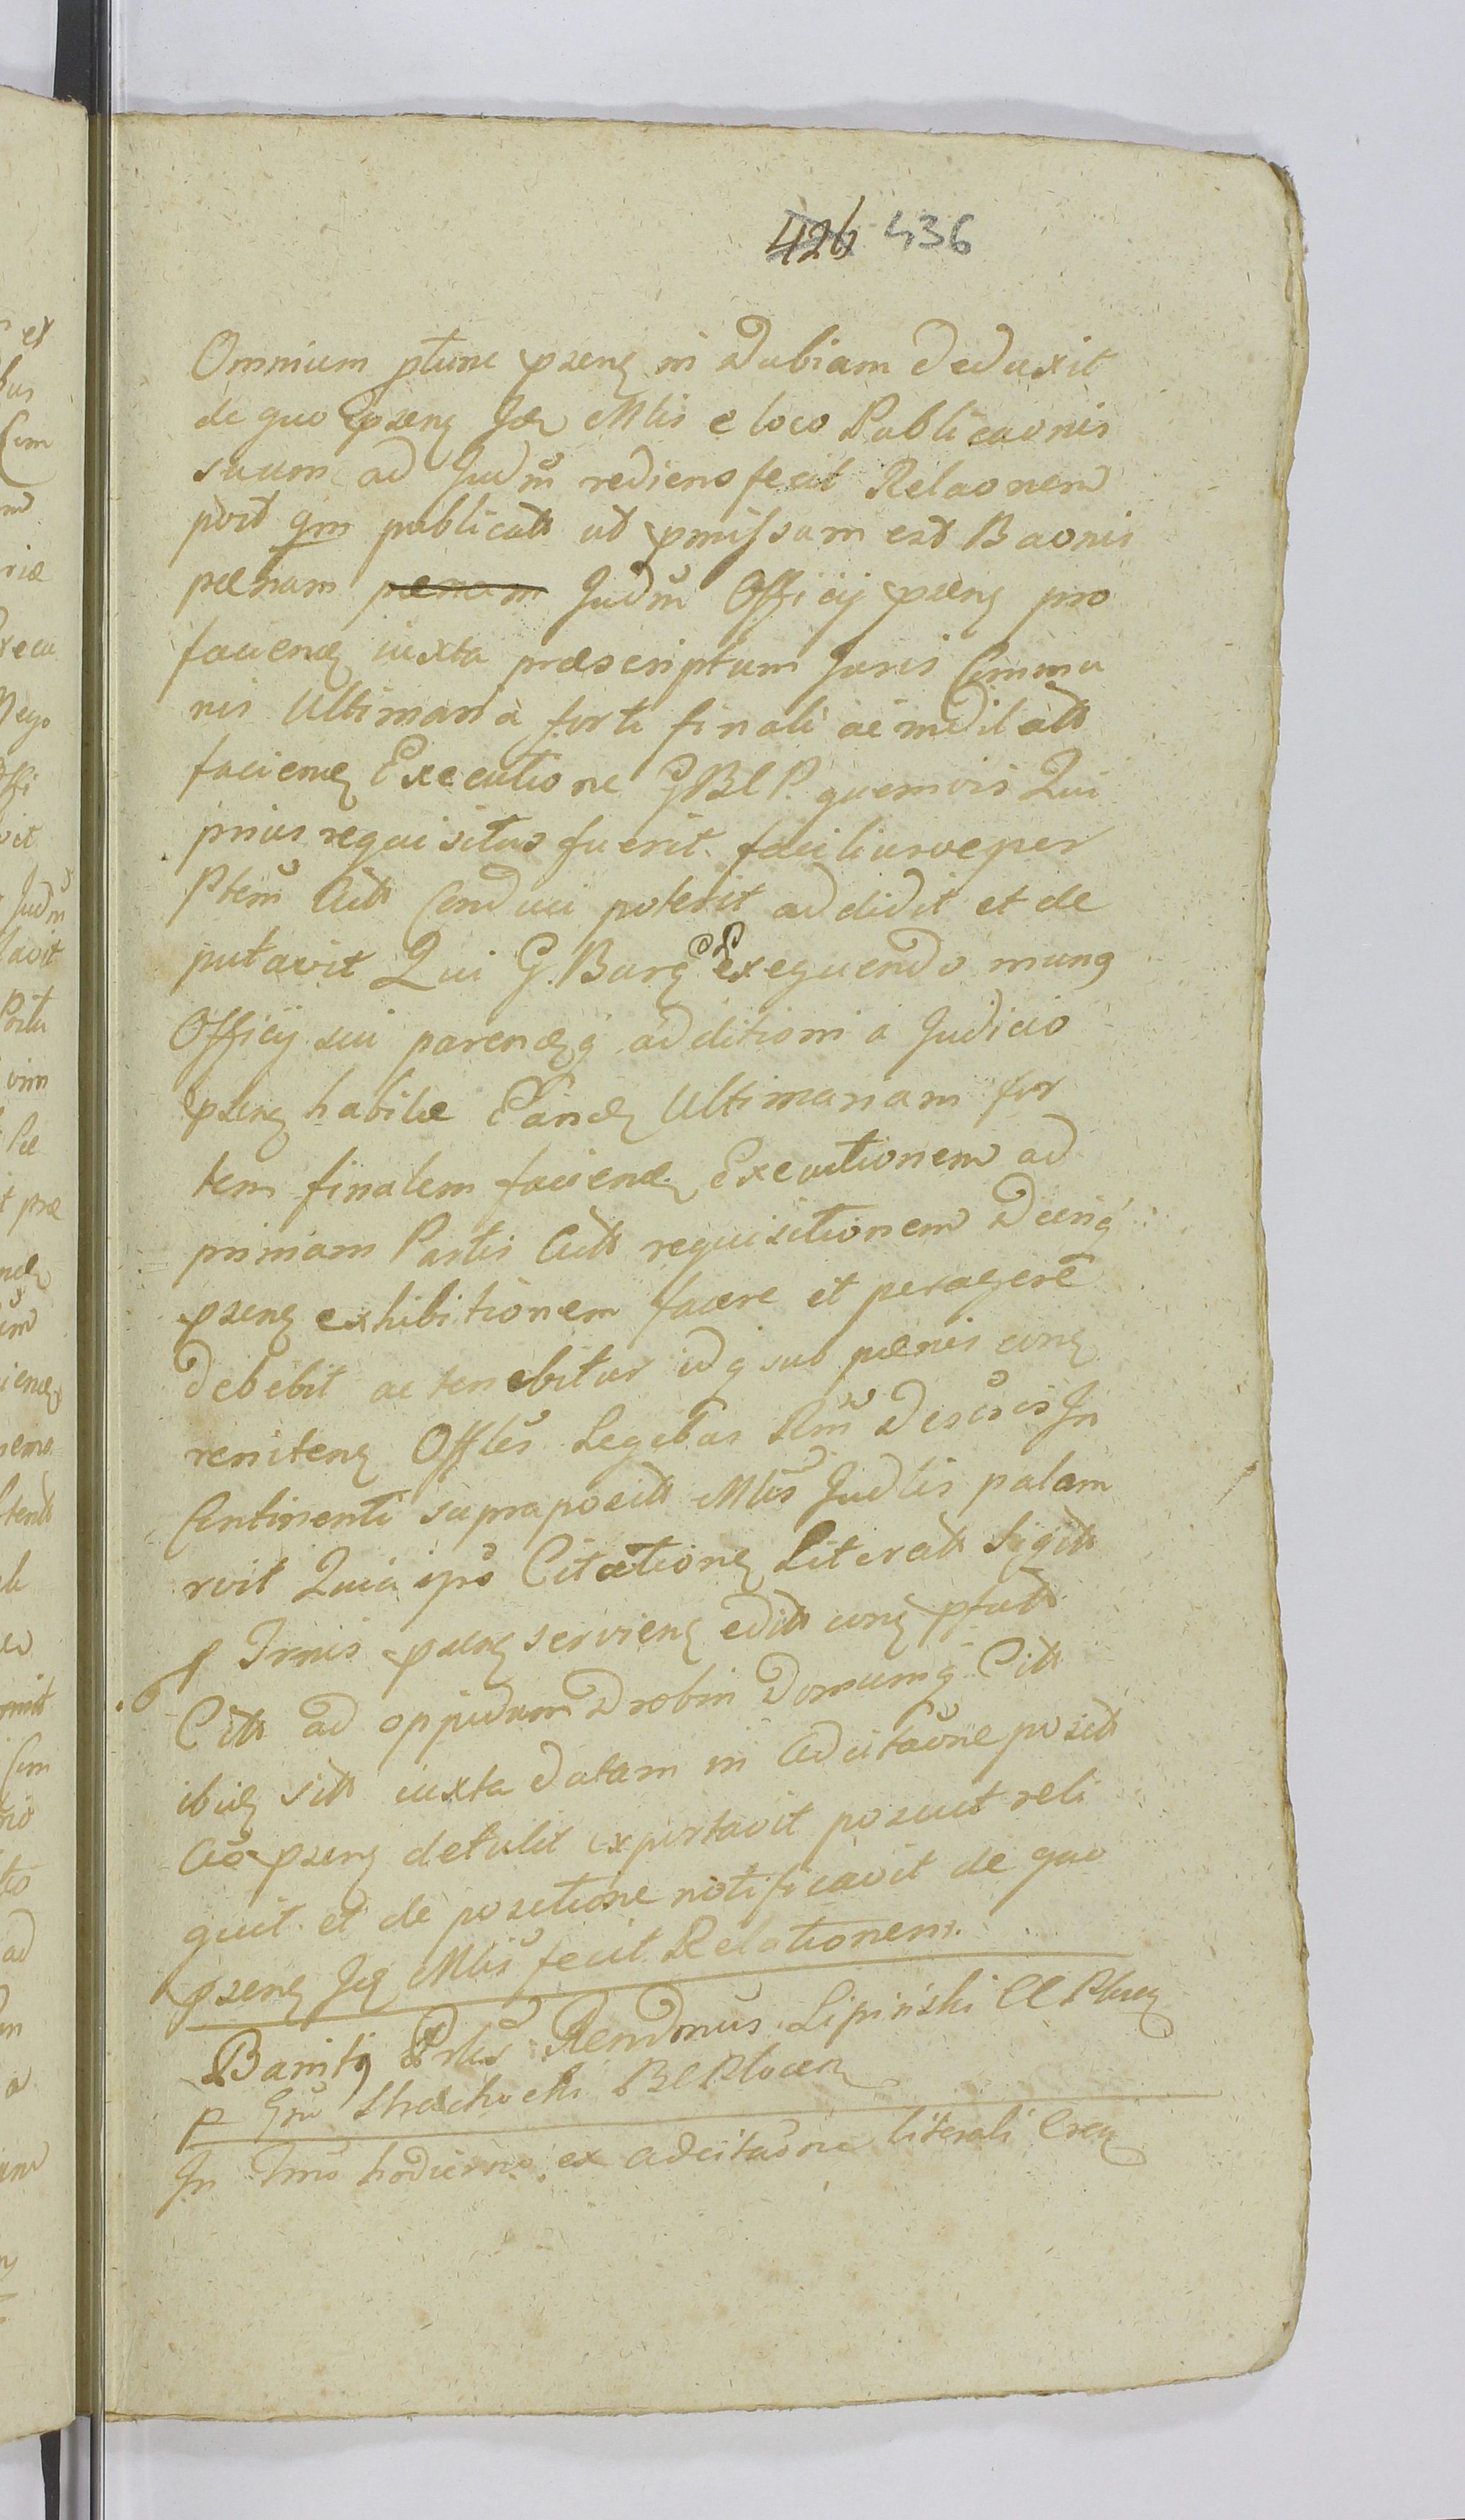 426 436
Omnium ptunc pzens in dubiam deduxit
de quo pzens Jdz Mlis e loco Publicaonis
suum ad Judm rediens fecit Relaonem
post qm publicatt ut pmissam est Baonis
pœnam pœnam Judm Officij pzens pro
faciend iuxta præscriptum Juris Commu
nis Ultimaria forti finali ac
faciend Executione GBCP. quemvis Qui
prius requisitus fuerit faciliusve per
Ptem Actt Conduci poterit addidit et de
putavit Qui G. Burg Exequendo munq
Officij sui parendoq additioni a Judicio
pzens habitæ Eand Ultimariam for
tem finalem faciend Executionem ad
primam Partis Actt requisitionem Decriq
pzens exhibitionem facere et peragere
debebit ac tenebitur idq sub pœnis conq
renitens Offles Legibus Rm Descris In
Continenti suprapositt Mlis Judlis palam
rvit Quia ipso Citatione Literatt Sigitt
p Trmis pzens serviens editt conq pfatt
Citt ad oppidum Drobin Domumq Citt
ibid sitt iuxta datam in Adcitaone positt
Ao pzens detulit exportavit posuit reli
quit et de positione notificavit de quo
pzens Jdz Mlis fecit Relationem.
Banitq Prlis Rendmus Lipiński CC Plocen
p Gm Strachocki BC Plocen
In Trmo hodierno ex adcitaone literali Crea